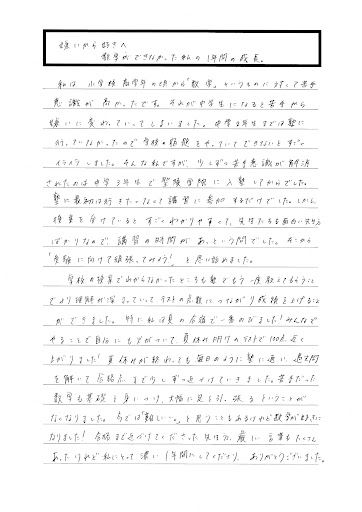 嫌いから好きへ
数学ができなかった私の1年間の成長。
私は、小学校高学年の頃から「数学」というものにすごく苦手
意識が高かったです。それが中学生になると苦手から
嫌いに変わっていってしまいました。中学2年生までは塾に
行っていなかったので学校の宿題をやっていてできないとずっと
イライラしました。そんな私ですが、少しずつ苦手意識が解消
されたのは中学3年生で聖陵学院に入塾してからでした。
塾に最初は行きたくなくて講習に参加するだけでした。しかし、
授業を受けているとすごくわかりやすくて、先生たちも面白い先生
ばかりなので、講習の時間があっという間でした。そこから
「受験に向けて頑張ってみよう!」と思い始めました。
学校の授業でわからなかったところも塾でもう一度教えてもらうこと
でより理解が深まっていてテストの点数につながり成績を上げること
ができました。特に私は夏の合宿で一番のびました!みんなで
やることで自信にもつながって、夏休み明けのテストで100点近く
上がりました!夏休みが終わっても毎日のように塾に通い、過去問
を解いて合格点まで少しずつ近づけていきました。苦手だった
数学も基礎を身につけ、大幅に足を引っ張るということが
なくなりました。今では「難しい…。」と思うこともあるけれど数学が好きに
なりました!合格まで近づけてくださった先生方、厳しい言葉もたくさん
あったけれど私にとって濃い1年間にしてくださり、ありがとうございました。